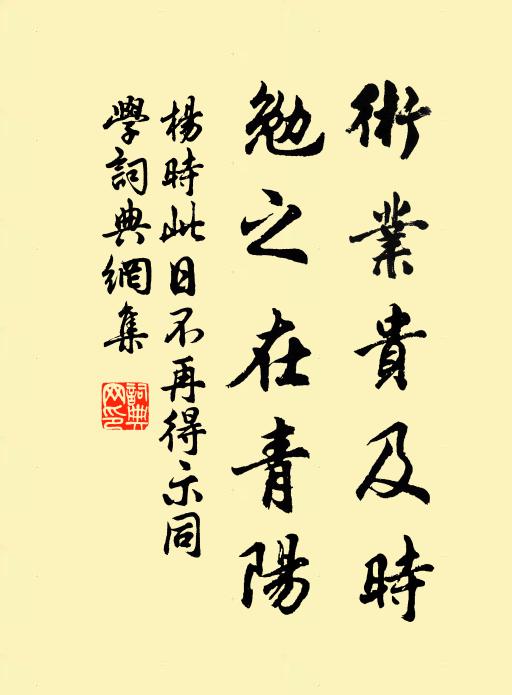 術業貴及時
勉之在青陽
楊時此日不再得示同
學詞典網集
詞典
网印